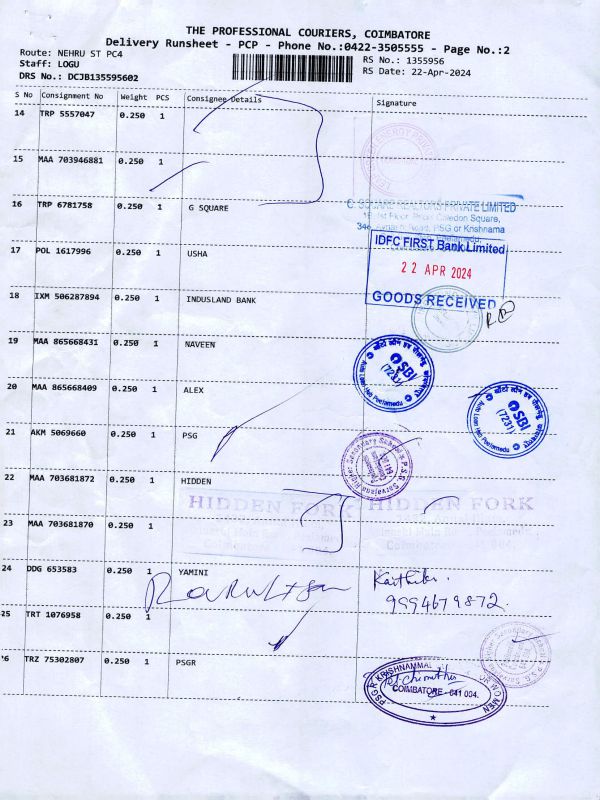 THE PROFESSIONAL COURIERS, COIMBATORE
Delivery Runsheet - PCP - Phone No.:0422-3505555 - Page No.:2
Route: NEHRU ST PC4
Staff: LOGU
DRS No.: DCJB135595602
RS No.: 1355956
RS Date: 22-Apr-2024
S No Consignment No Weight PCS Consignee Details Signature
14 TRP 5557047 0.250 1
15 MAA 703946881 0.250 1
16 TRP 6781758 0.250 1 G SQUARE
G SQUARE REALTORS PRIVATE LIMITED
IDFC FIRST Bank Limited
17 POL 1617996 0.250 1 USHA
22 APR 2024
18 IXM 506287894 0.250 1 INDUSLAND BANK
GOODS RECEIVED
19 MAA 865668431 0.250 1 NAVEEN
SBI
(7231)
20 MAA 865668409 0.250 1 ALEX
SBI
(7231)
21 AKM 5069660 0.250 1 PSG
22 MAA 703681872 0.250 1 HIDDEN
HIDDEN FORK HIDDEN FORK
23 MAA 703681870 0.250 1
24 DDG 653583 0.250 1 YAMINI
9994679872.
25 TRT 1076958 0.250 1
26 TRZ 75302807 0.250 1 PSGR
PSGR KRISHNAMMAL
COIMBATORE - 641 004.
WOMEN